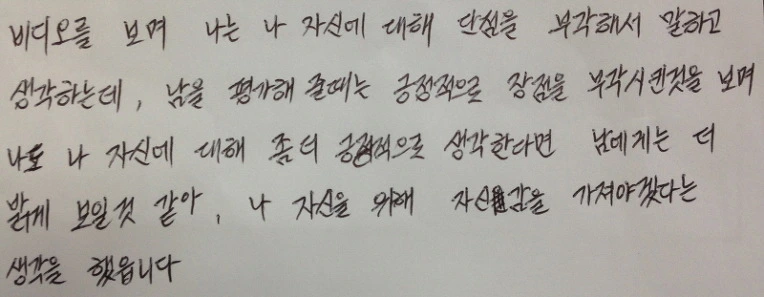 비디오를 보며 나는 나 자신에 대해 단점을 부각해서 말하고
생각하는데, 남을 평가해 줄때는 긍정적으로 장점을 부각시킨것을 보며
나도 나 자신에 대해 좀 더 긍정적으로 생각한다면 남에게는 더
밝게 보일것 같아, 나 자신을 위해 자신감을 가져야겠다는
생각을 했읍니다